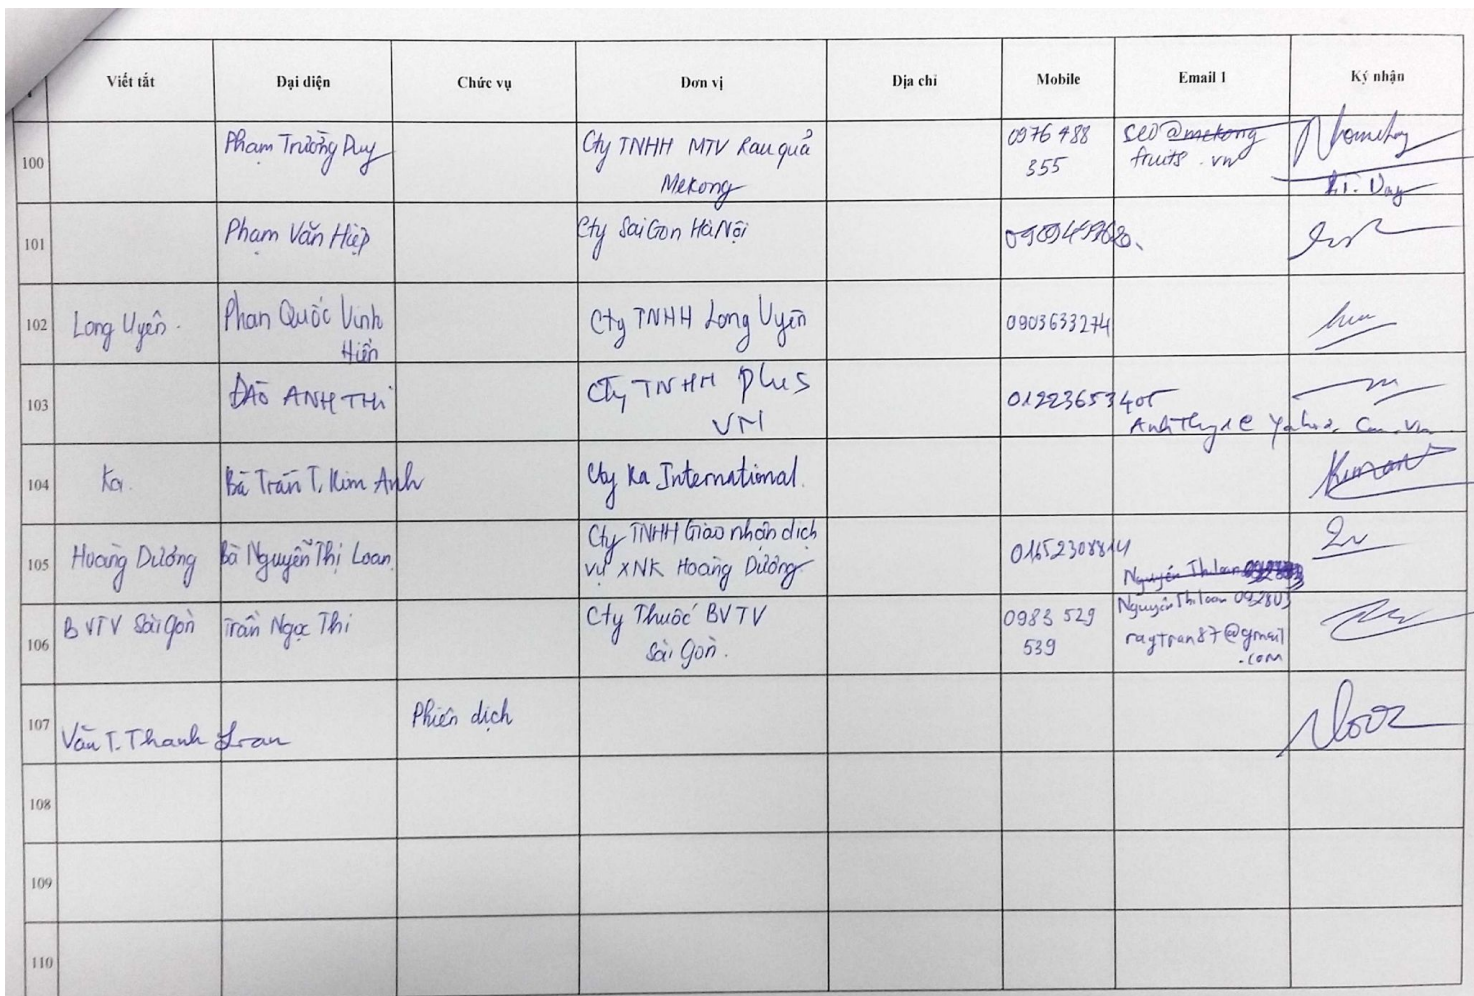 Viết tắt Đại diện Chức vụ Đơn vị Địa chỉ Mobile Email 1 Ký nhận
100 Phạm Trường Duy Cty TNHH MTV Rau quả 0976 488 @mekong
Mekong 355 fruits.vn
101 Phạm Văn Hiệp Cty SaiGon HàNội
102 Long Uyên. Phan Quốc Vinh Cty TNHH Long Uyên 0903633274
Hiển
103 ĐÀO ANH THI Cty TNHH plus 01223653405
VN
104 Ka. Bà Trần T. Kim Anh Cty Ka International.
105 Hoàng Dương Bà Nguyễn Thị Loan Cty TNHH Giao nhận dịch 01652308814
vụ XNK Hoàng Dương
Nguyễn Thị Loan
106 BVTV Sài Gòn Trần Ngọc Thi Cty Thuốc BVTV 0983 529 Nguyễn Thị Loan 092803
Sài Gòn. 539 raytran87@gmail
.com
107 Văn T. Thanh Loan Phiên dịch
108
109
110